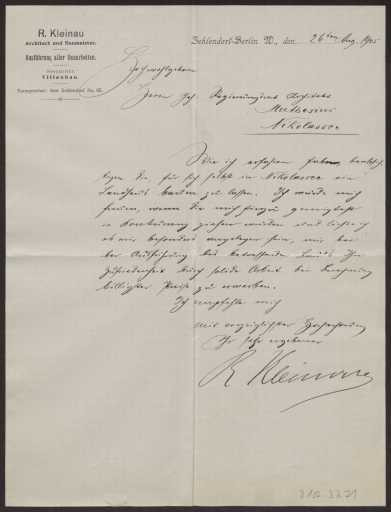 R. Kleinau
Architect und Baumeister.
Ausführung aller Bauarbeiten.
Specialität:
Villenbau.
Fernsprecher: Amt Zehlendorf No. 85.
Zehlendorf-Berlin W., den 26ten Aug. 1905
Hochwohlgeboren
Herrn Geh. Regierungsrat Architekt
Muthesius
Nikolassee
Wie ich erfahren habe, beabsich-
tigen Sie, für sich selbst in Nikolassee ein
Landhaus bauen zu lassen. Ich würde mich
freuen, wenn Sie mich hierzu geneigtest
in Konkurrenz ziehen würden und ließe ich
es mir besonders angelegen sein, mir bei
der Ausführung des betreffenden Baues Ihre
Zufriedenheit durch solide Arbeit bei Berechnung
billigster Preise zu erwerben.
Ich empfehle mich
mit vorzüglichster Hochachtung
Ihr sehr ergebener
R Kleinau